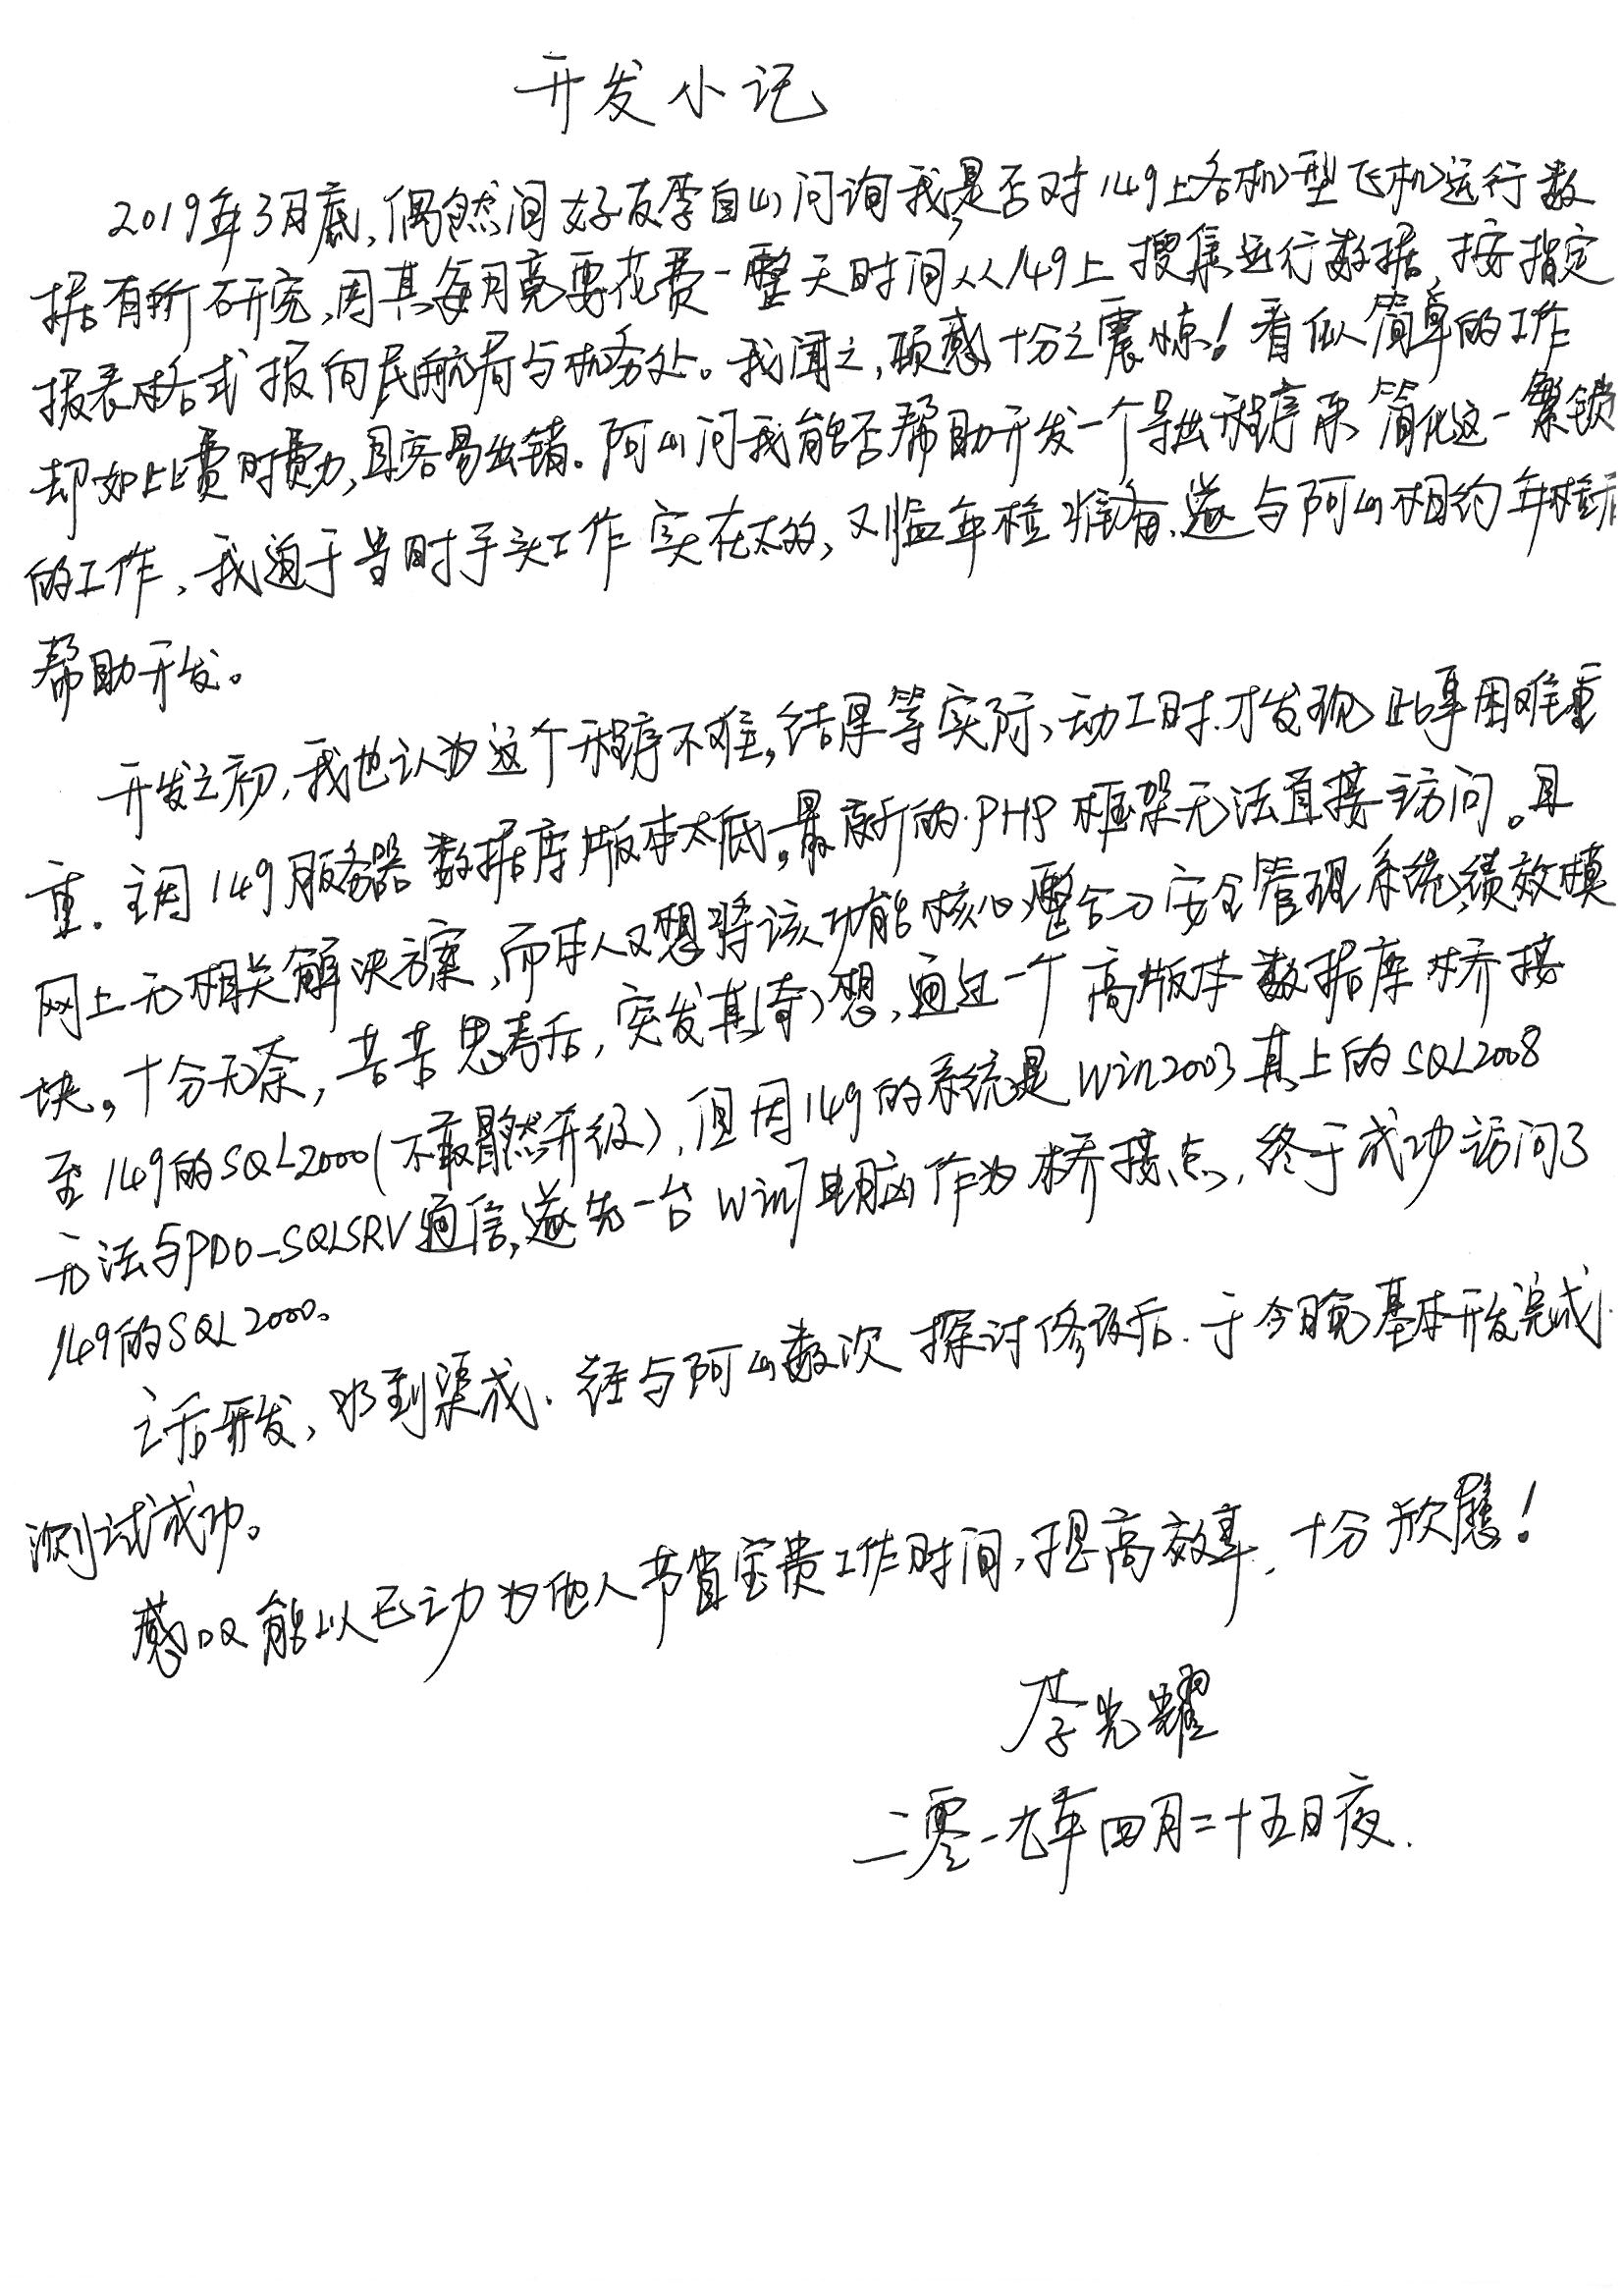 开发小记
2019年3月底,偶然间好友李自山问询我是否对149上各机型飞机运行数
据有所研究,因其每月竟要花费一整天时间从149上搜集运行数据,按指定
报表格式报向民航局与机务处。我闻之,顿感十分之震惊!看似简单的工作
却如此费时费力,且容易出错。阿山问我能否帮助开发一个导出程序来简化这一繁锁
的工作,我迫于当时手头工作实在太多,又临年检准备,遂与阿山相约年检后
帮助开发。
开发之初,我也认为这个程序不难,结果等实际动工时,才发现此事困难重
重.主因149服务器数据库版本太低,最新的PHP框架无法直接访问。且
网上无相关解决方案,而本人又想将该功能核心整合了安全管理系统绩效模
块。十分无奈,苦苦思考后,突发其(奇)想,通过一个高版本数据库桥接
至149的SQL2000(不敢冒然升级),但因149的系统是Win2003其上的SQL2008
无法与PDO-SQLSRV通信,遂先一台Win7电脑作为桥接点,终于成功访问了
149的SQL2000。
之后开发,水到渠成.经与阿山数次探讨修改后.于今日晚基本开发完成.
测试成功。
感叹能以己之力为他人节省宝贵工作时间,提高效率,十分欣慰!
李光耀
二零一九年四月二十五日夜.